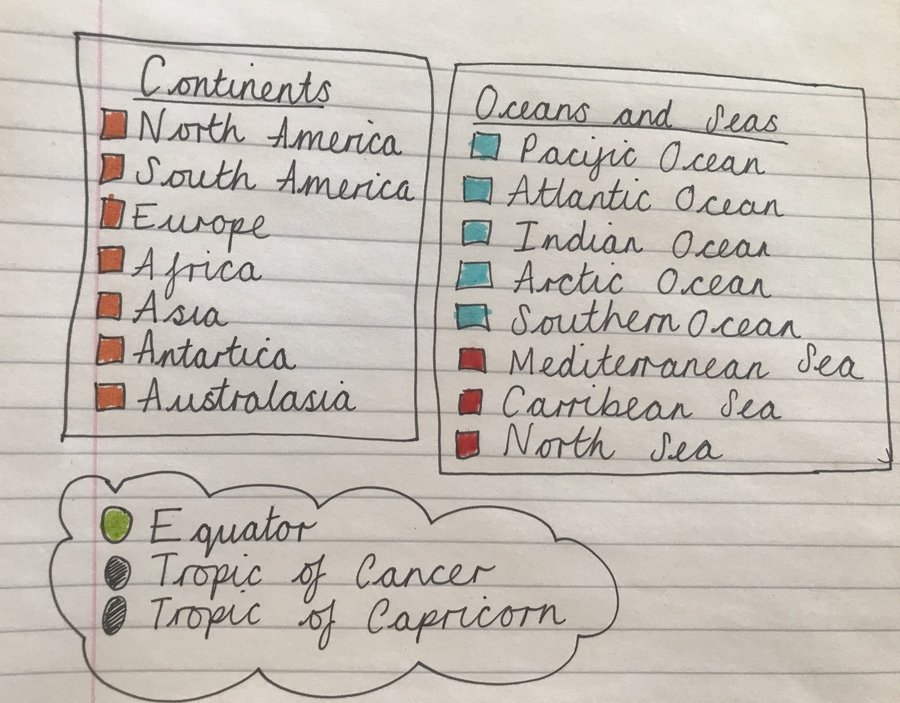 Continents
North America
South America
Europe
Africa
Asia
Antartica
Australasia
Oceans and Seas
Pacific Ocean
Atlantic Ocean
Indian Ocean
Arctic Ocean
Southern Ocean
Mediterranean Sea
Carribean Sea
North Sea
Equator
Tropic of Cancer
Tropic of Capricorn